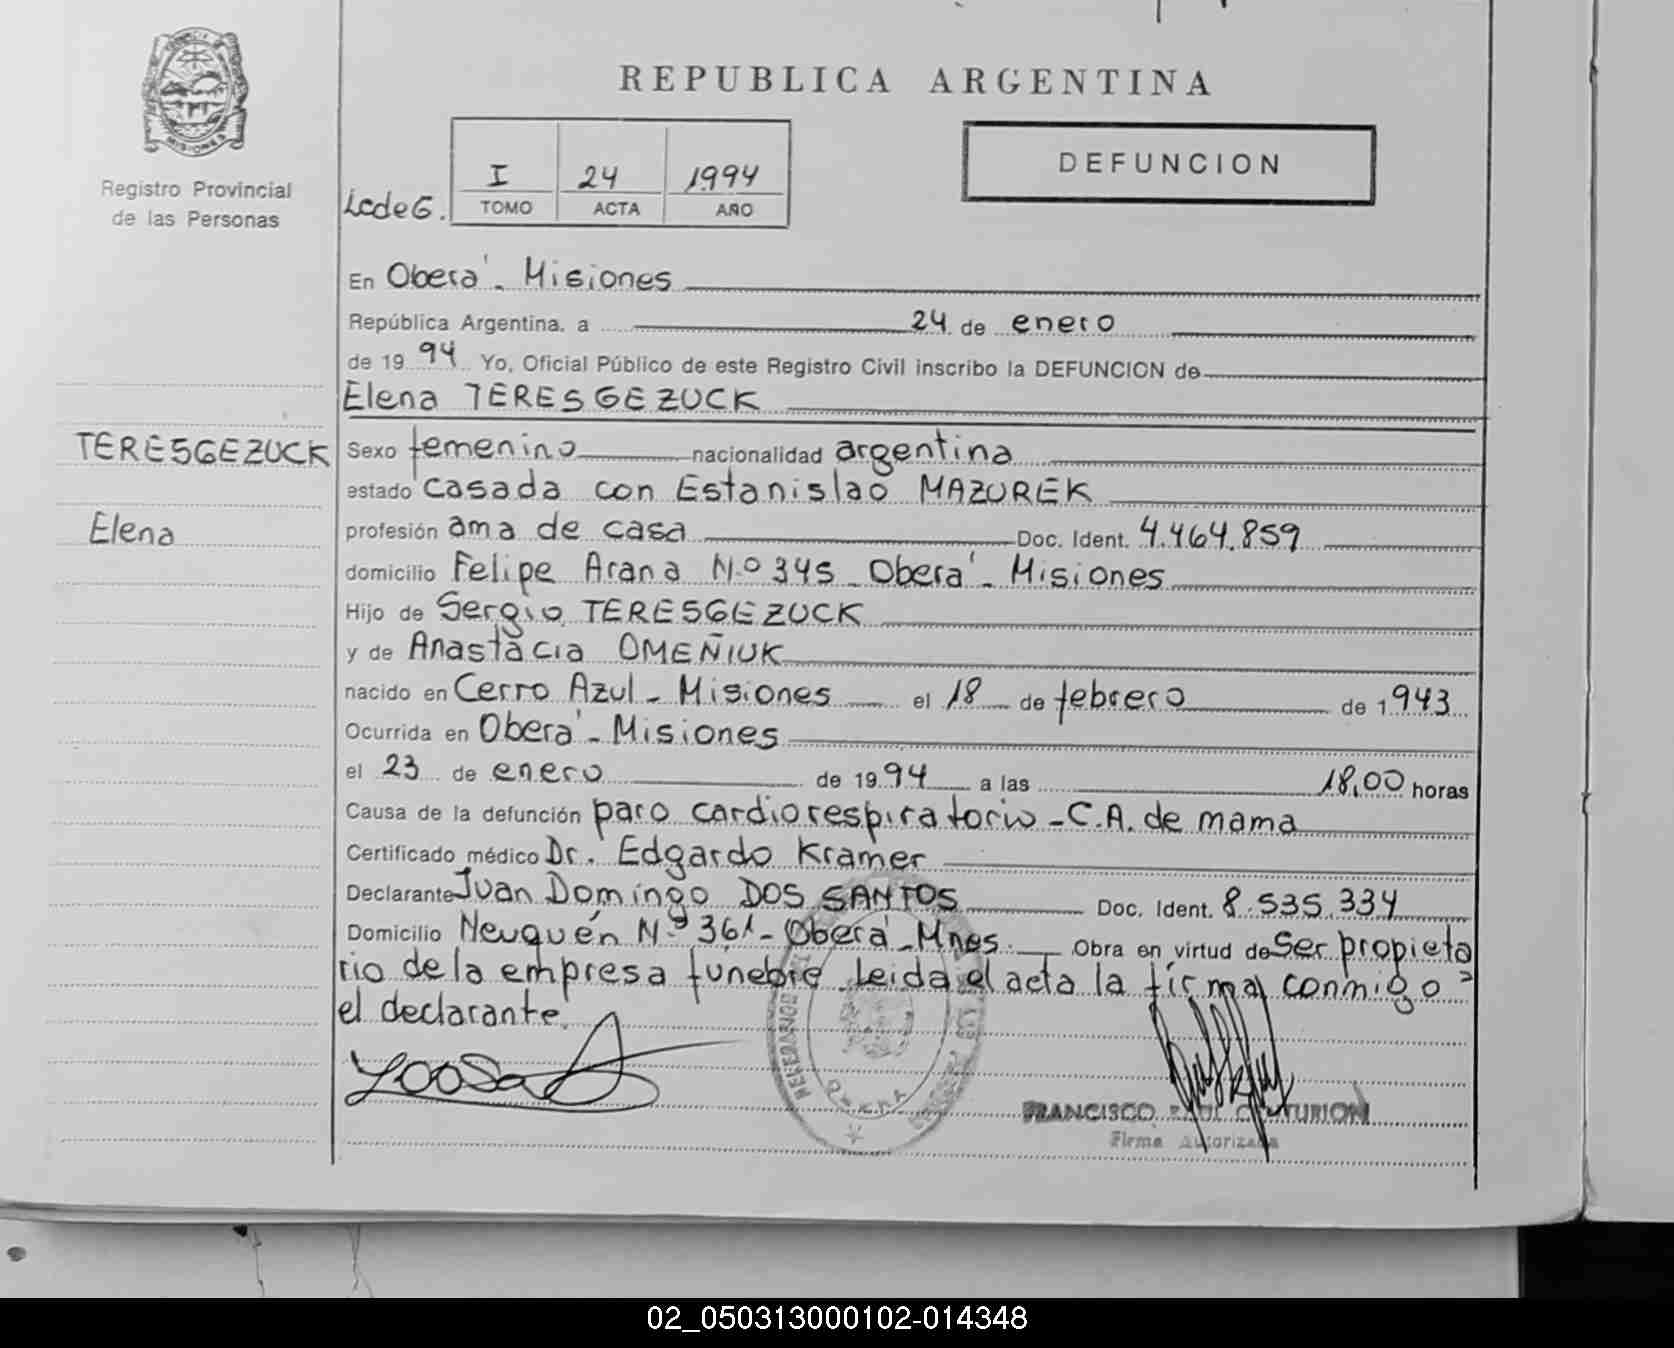 REPUBLICA ARGENTINA
MISIONES
Registro Provincial
de las Personas
LcdeG.
I 24 1994
TOMO ACTA AÑO
DEFUNCION
En Oberá - Misiones
República Argentina, a 24 de enero
de 1994 Yo, Oficial Público de este Registro Civil inscribo la DEFUNCION de
Elena TERESGEZUCK
TERESGEZUCK
Elena
Sexo femenino nacionalidad argentina
estado casada con Estanislao MAZUREK
profesión ama de casa Doc. Ident. 4.464.859
domicilio Felipe Arana N.o 345 - Oberá - Misiones
Hijo de Sergio TERESGEZUCK
y de Anastacia OMEÑIUK
nacido en Cerro Azul - Misiones el 18 de febrero de 1943
Ocurrida en Oberá - Misiones
el 23 de enero de 1994 a las 18,00 horas
Causa de la defunción paro cardiorespiratorio - C.A. de mama
Certificado médico Dr. Edgardo Kramer
Declarante Juan Domingo DOS SANTOS Doc. Ident. 8.535.334
Domicilio Neuquén N.o 361 - Oberá - Mnes. Obra en virtud de ser propieta
rio de la empresa fúnebre. Leida el acta la firma conmigo =
el declarante.
OBERA
FRANCISCO RAUL CENTURION
Firma Autorizada
02_050313000102-014348